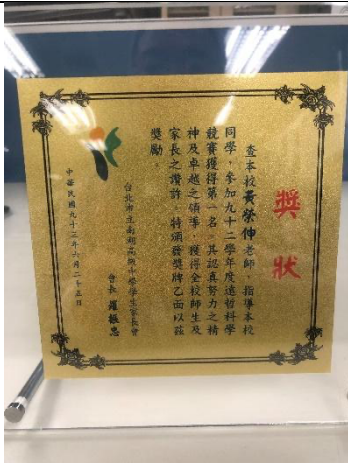 獎狀
查本校黃榮仲老師,指導本校
同學,參加九十二學年度遠哲科學
競賽獲得第一名,其認真努力之精
神及卓越之領導,獲得全校師生及
家長之讚許,特頒發獎牌乙面以茲
獎勵。
台北市立南湖高級中學學生家長會
會長 羅振忠
中華民國九十三年六月二十五日